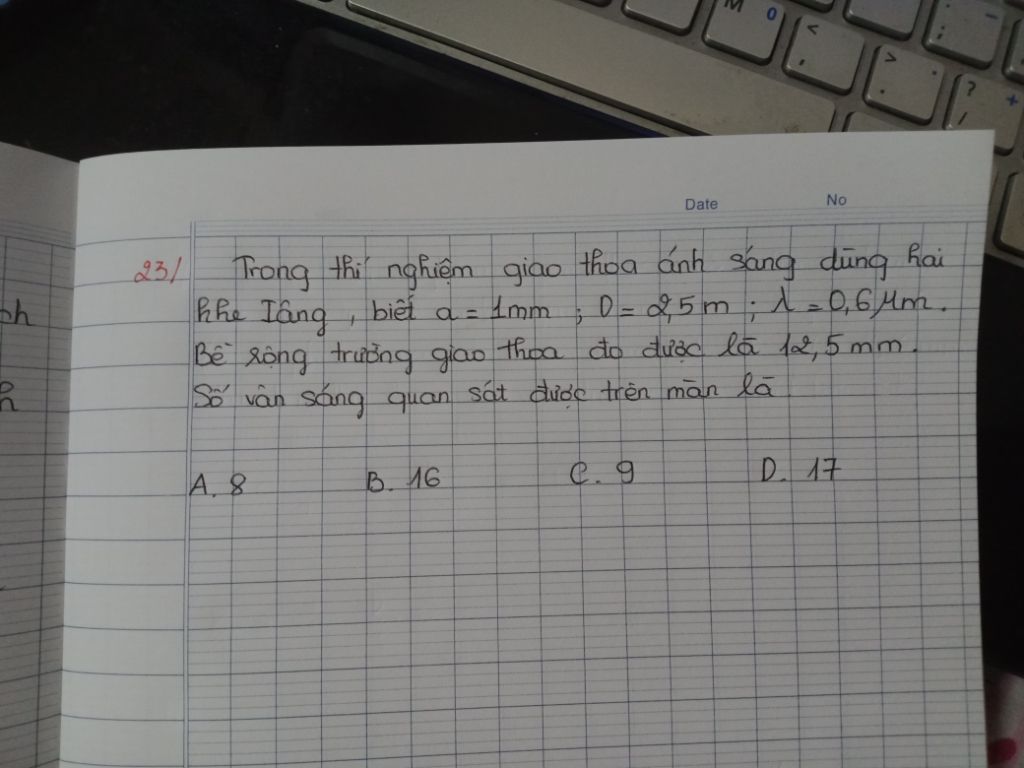 M 0
< ,
> .
? /
+
Date No
23/ Trong thí nghiệm giao thoa ánh sáng dùng hai
khe Iâng, biết a = 1mm ; D = 2,5m ; λ = 0,6 μm.
Bề rộng trường giao thoa đo được là 12,5mm.
Số vân sáng quan sát được trên màn là
A. 8 B. 16 C. 9 D. 17